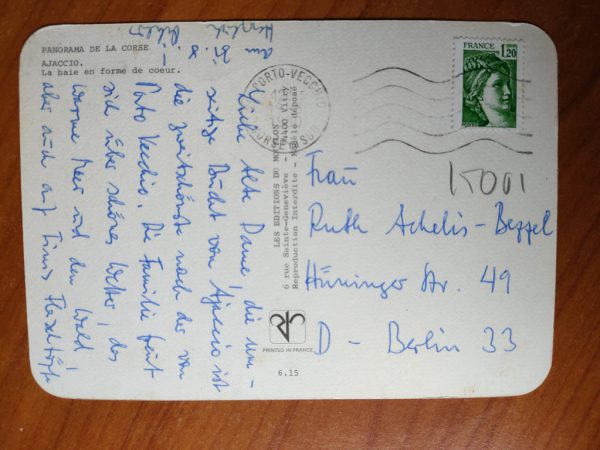 PANORAMA DE LA CORSE
AJACCIO.
La baie en forme de coeur.
Liebe Alte Dame! die um-
seitige Bucht von Ajaccio ist
die zweitschönste nach der von
Porto Vecchio. Die Familie freut
sich über schönes Wetter, das
warme Meer und den Wald,
aber auch auf
am 31. 8
Herzlich
LES EDITIONS DU MOUFLON
6 rue Sainte-Geneviève - 94400 Vitry
Reproduction Interdite - Modèle déposé
PRINTED IN FRANCE
6.15
PORTO-VECCHIO
FRANCE
1,20
Frau
Ruth Achelis-Bezzel
Hüninger Str. 49
D - Berlin 33